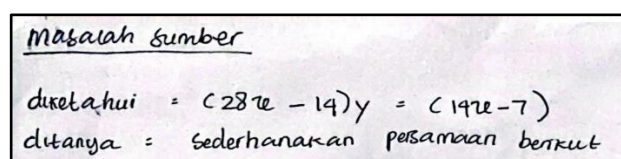 Masalah sumber
diketahui = (28x - 14)y = (14x - 7)
ditanya = sederhanakan persamaan berikut